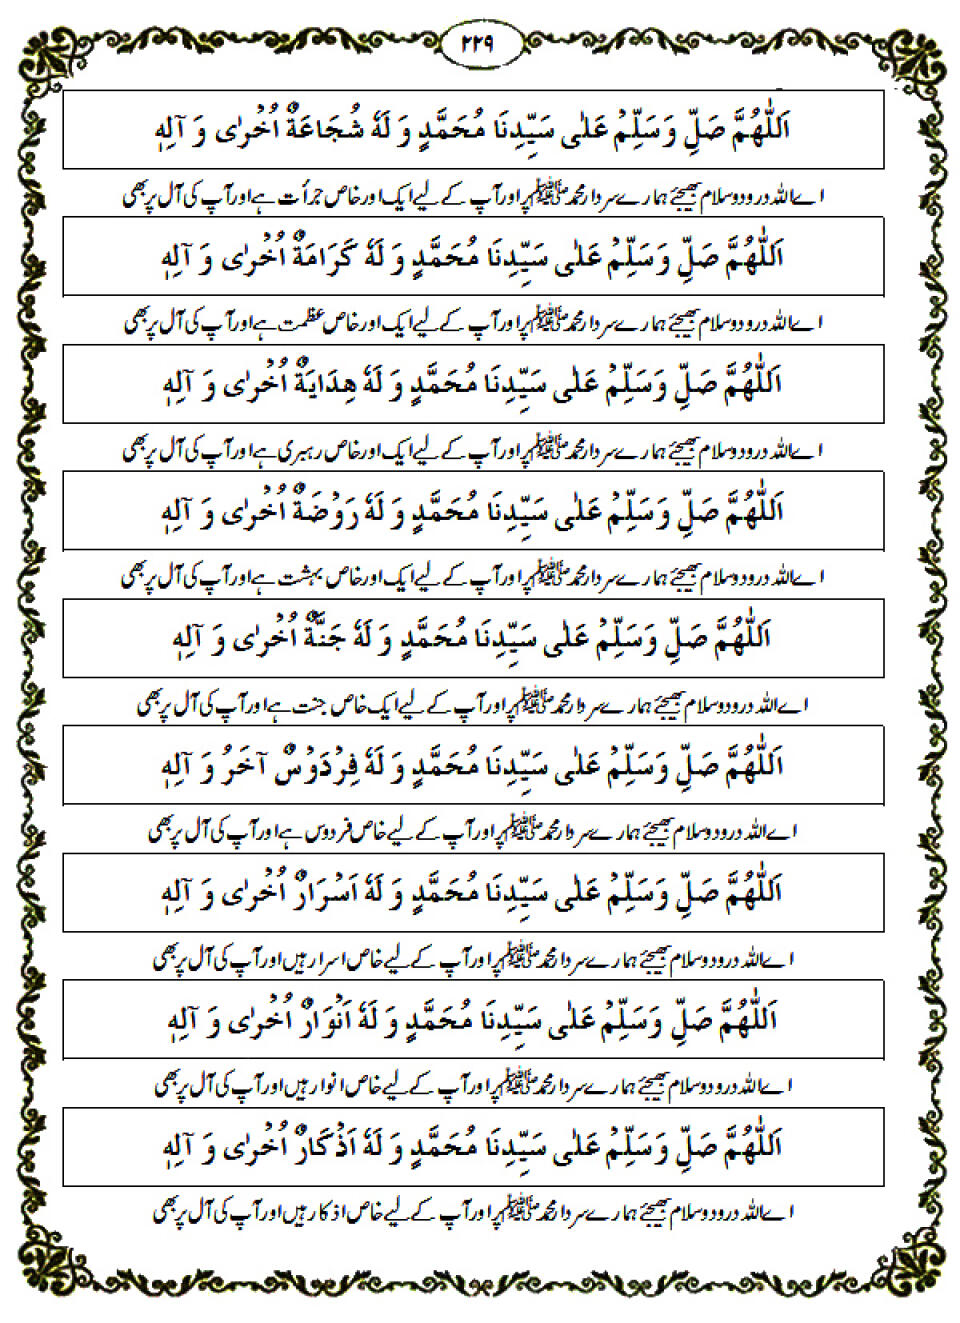 ۲۲۹
اَللّٰهُمَّ صَلِّ وَسَلِّمْ عَلٰى سَيِّدِنَا مُحَمَّدٍ وَ لَهٗ شُجَاعَةٌ اُخْرٰى وَ آلِهٖ
اے اللہ درود و سلام بھیجئے ہمارے سردار محمد ﷺ پر اور آپ کے لیے ایک اور خاص جرأت ہے اور آپ کی آل پر بھی
اَللّٰهُمَّ صَلِّ وَسَلِّمْ عَلٰى سَيِّدِنَا مُحَمَّدٍ وَ لَهٗ كَرَامَةٌ اُخْرٰى وَ آلِهٖ
اے اللہ درود و سلام بھیجئے ہمارے سردار محمد ﷺ پر اور آپ کے لیے ایک اور خاص عظمت ہے اور آپ کی آل پر بھی
اَللّٰهُمَّ صَلِّ وَسَلِّمْ عَلٰى سَيِّدِنَا مُحَمَّدٍ وَ لَهٗ هِدَايَةٌ اُخْرٰى وَ آلِهٖ
اے اللہ درود و سلام بھیجئے ہمارے سردار محمد ﷺ پر اور آپ کے لیے ایک اور خاص رہبری ہے اور آپ کی آل پر بھی
اَللّٰهُمَّ صَلِّ وَسَلِّمْ عَلٰى سَيِّدِنَا مُحَمَّدٍ وَ لَهٗ رَوْضَةٌ اُخْرٰى وَ آلِهٖ
اے اللہ درود و سلام بھیجئے ہمارے سردار محمد ﷺ پر اور آپ کے لیے ایک اور خاص بہشت ہے اور آپ کی آل پر بھی
اَللّٰهُمَّ صَلِّ وَسَلِّمْ عَلٰى سَيِّدِنَا مُحَمَّدٍ وَ لَهٗ جَنَّةٌ اُخْرٰى وَ آلِهٖ
اے اللہ درود و سلام بھیجئے ہمارے سردار محمد ﷺ پر اور آپ کے لیے ایک خاص جنت ہے اور آپ کی آل پر بھی
اَللّٰهُمَّ صَلِّ وَسَلِّمْ عَلٰى سَيِّدِنَا مُحَمَّدٍ وَ لَهٗ فِرْدَوْسٌ آخَرُ وَ آلِهٖ
اے اللہ درود و سلام بھیجئے ہمارے سردار محمد ﷺ پر اور آپ کے لیے خاص فردوس ہے اور آپ کی آل پر بھی
اَللّٰهُمَّ صَلِّ وَسَلِّمْ عَلٰى سَيِّدِنَا مُحَمَّدٍ وَ لَهٗ اَسْرَارٌ اُخْرٰى وَ آلِهٖ
اے اللہ درود و سلام بھیجئے ہمارے سردار محمد ﷺ پر اور آپ کے لیے خاص اسرار ہیں اور آپ کی آل پر بھی
اَللّٰهُمَّ صَلِّ وَسَلِّمْ عَلٰى سَيِّدِنَا مُحَمَّدٍ وَ لَهٗ اَنْوَارٌ اُخْرٰى وَ آلِهٖ
اے اللہ درود و سلام بھیجئے ہمارے سردار محمد ﷺ پر اور آپ کے لیے خاص انوار ہیں اور آپ کی آل پر بھی
اَللّٰهُمَّ صَلِّ وَسَلِّمْ عَلٰى سَيِّدِنَا مُحَمَّدٍ وَ لَهٗ اَذْكَارٌ اُخْرٰى وَ آلِهٖ
اے اللہ درود و سلام بھیجئے ہمارے سردار محمد ﷺ پر اور آپ کے لیے خاص اذکار ہیں اور آپ کی آل پر بھی